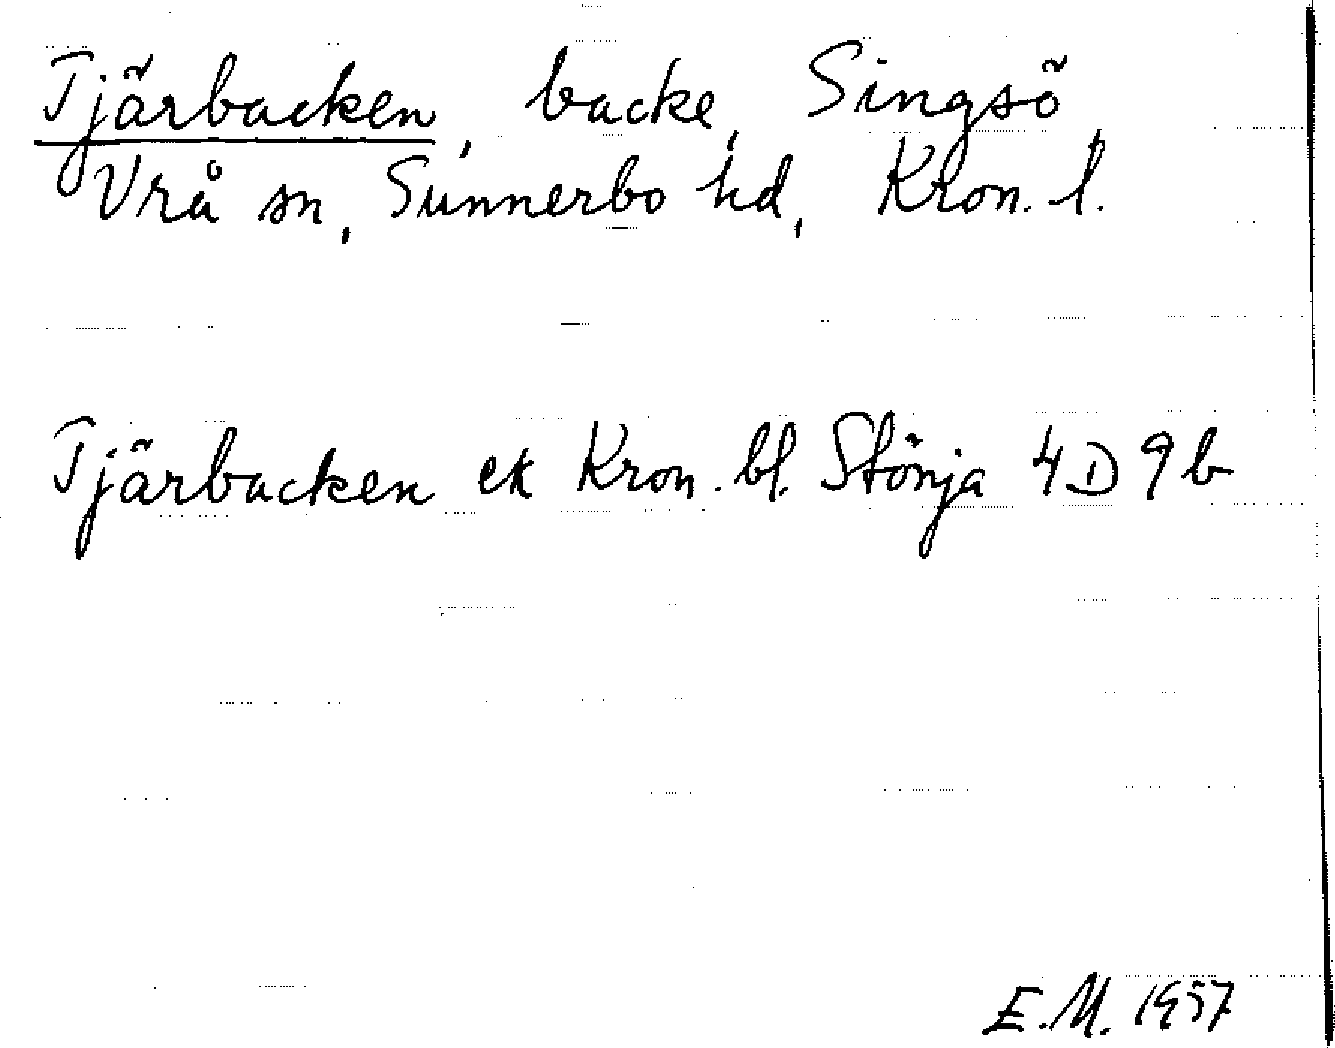 Tjärbacken, backe, Singsö,
Vrå sn, Sunnerbo hd, Kron. l.
Tjärbacken ek Kron. bl. Stönja 4D9b
E.M. 1957